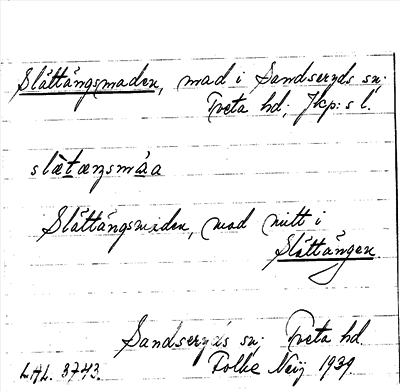 Slättängsmaden, mad i Sandseryds sn;
Tveta hd; Jkp:s l.
slætæŋsmaa
Slättängsmaden, mad mitt i
Slättängen
Sandseryds sn; Tveta hd.
LAL. 3743. Folke Neij 1939.